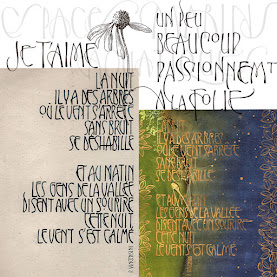 JE T'AIME
UN PEU
BEAUCOUP
PASSIONNEMT
A LA FOLIE
LA NUIT
IL Y A DES ARBRES
OÙ LE VENT S'ARRÊTE
SANS BRUIT
SE DÉSHABILLE
ET AU MATIN
LES GENS DE LA VALLÉE
DISENT AVEC UN SOURIRE
CETTE NUIT
LE VENT S'EST CALMÉ
LA NUIT
IL Y A DES ARBRES
OÙ LE VENT S'ARRÊTE
SANS BRUIT
SE DÉSHABILLE
ET AU MATIN
LES GENS DE LA VALLÉE
DISENT AVEC UN SOURIRE
CETTE NUIT
LE VENT S'EST CALMÉ